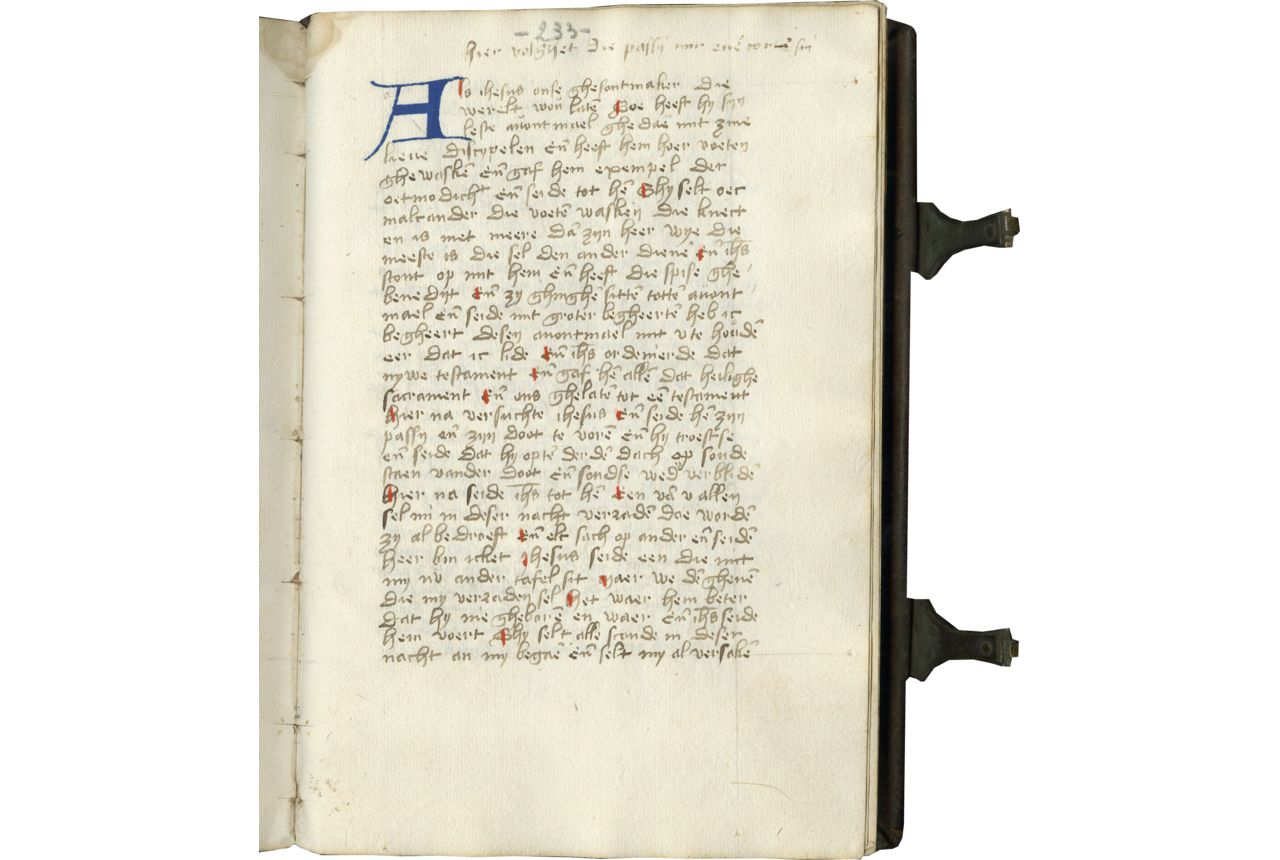 -233-
hier volghet die passij mit enē cortē sin
Als ihesus onse ghesontmaker die
werelt wou̇ latē Doe heeft hy syn
leste auontmael ghedaē mit zine
lieue discypelen en̄ heeft hem heer voeten
ghewasken en̄ gaf hem exempel der
oetmodich̄t en̄ seide tot hē Ghy selt oec
malcander die voetē wasken die knect
en is niet meere dā zijn heer wye die
meeste is die sel den ander dienē En̄ ih̄s
stont op mit hem en̄ heeft die spise ghe
benedijt En̄ zy ghinghē sittē tottē auont
mael en̄ seide mit groter begheertē heb ic
begheert desen auontmael mit v te houdē
eer dat ic lide En̄ ih̄s ordenierde dat
nywe testament En̄ gaf hē allē dat heilighe
sacrament En̄ ons ghelatē tot eē testament
Hier na versuchte ihesus En̄ seide hē zijn
passij en̄ zijn doot te vorē en̄ hy troestse
en̄ seide dat hy optē derdē dach op soude
staen vander doot en̄ soudse wed' verblidē
Hier na seide ih̄s tot hē Een vā v allen
sel mi in deser nacht verradē doe wordē
zy al bedroeft En̄ elc sach op ander en̄ seidē
heer bin icket Ihesus seide een die mit
my nv ander tafel sit Maer we dē ghenē
die my verraden sel Het waer hem beter
dat hy nie gheborē en waer en̄ ih̄s seide
hem voert Ghy selt alle scande in deser
nacht an my begaē en̄ selt my al versakē